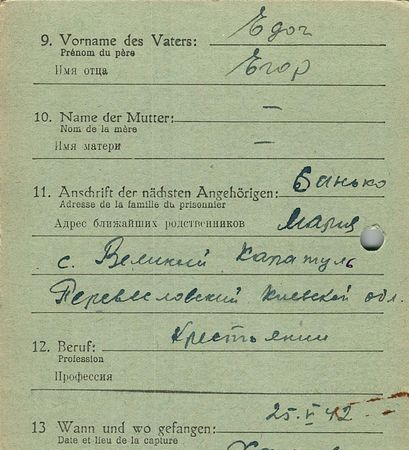 9. Vorname des Vaters: Егог
Prénom du père
Имя отца Егор
10. Name der Mutter: —
Nom de la mère
Имя матери —
11. Anschrift der nächsten Angehörigen: Бинько
Adresse de la famille du prisonnier
Адрес ближайших родственников Мария
с. Великий Каратуль
Переяславский Киевской обл.
12. Beruf: Крестьянин
Profession
Профессия
13 Wann und wo gefangen: 25.V 42
Date et lieu de la capture